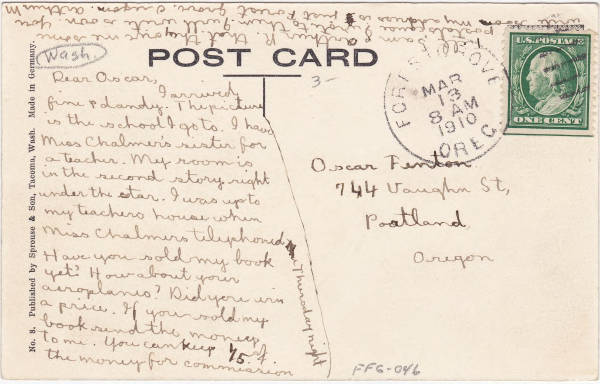 Wash.
POST CARD
3-
FOREST GROVE
MAR
13
8 AM
1910
OREG.
U.S. POSTAGE
ONE CENT
Dear Oscar,
I arrived
fine & dandy. The picture
is the school I go to. I have
Miss Chalmer's sister for
a teacher. My room is
in the second story right
under the star. I was up to
my teachers house when
Miss Chalmers telephoned
on Thursday night
Have you sold my book
yet? How about your
aeroplanes? Did you win
a price. If you sold my
book send the money
to me. You can keep 15¢ of
the money for commission
Oscar Fenton
744 Vaughn St,
Portland,
Oregon
No. 8. Published by Sprouse & Son, Tacoma, Wash. Made in Germany.
FFG-046